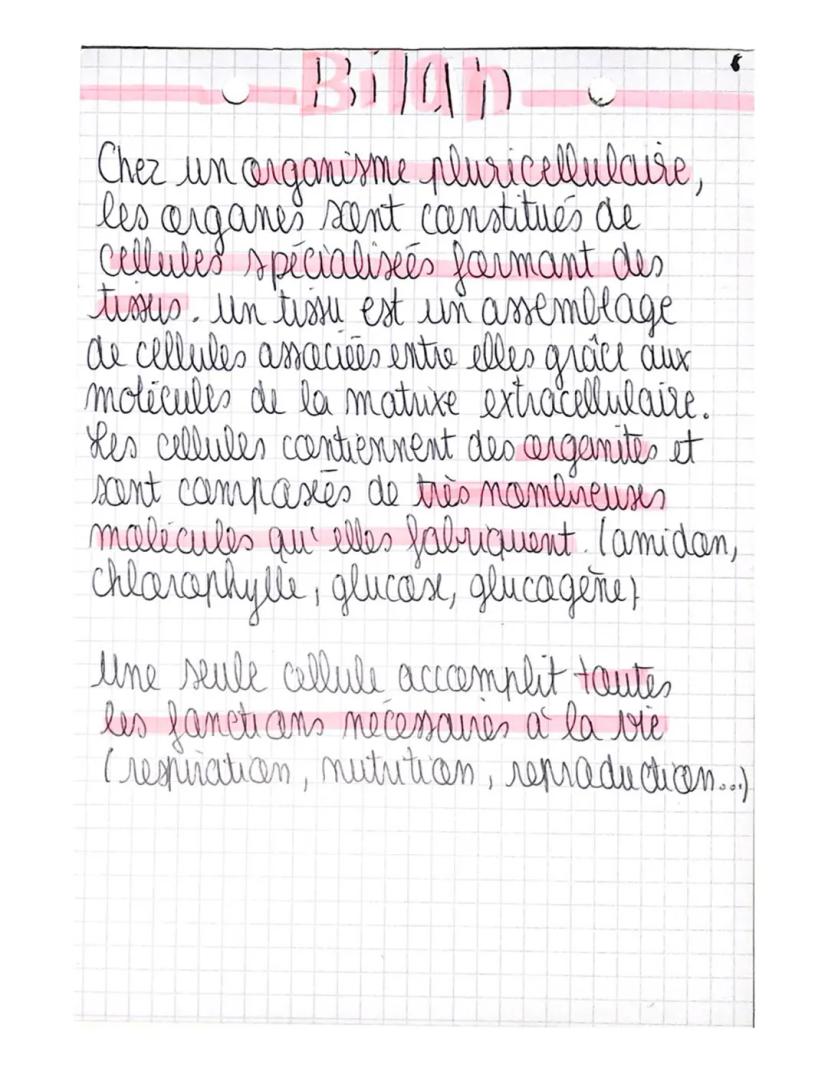 Bilan
Chez un organisme pluricellulaire,
les organes sont constitués de
cellules spécialisées formant des
tissus. Un tissu est un assemblage
de cellules associées entre elles grâce aux
molécules de la matrixe extracellulaire.
Les cellules contiennent des organites et
sont composées de très nombreuses
molécules qu'elles fabriquent. (amidon,
chlorophylle, glucose, glucogène)
Une seule cellule accomplit toutes
les fonctions nécessaires à la vie
(respiration, nutrition, reproduction...)